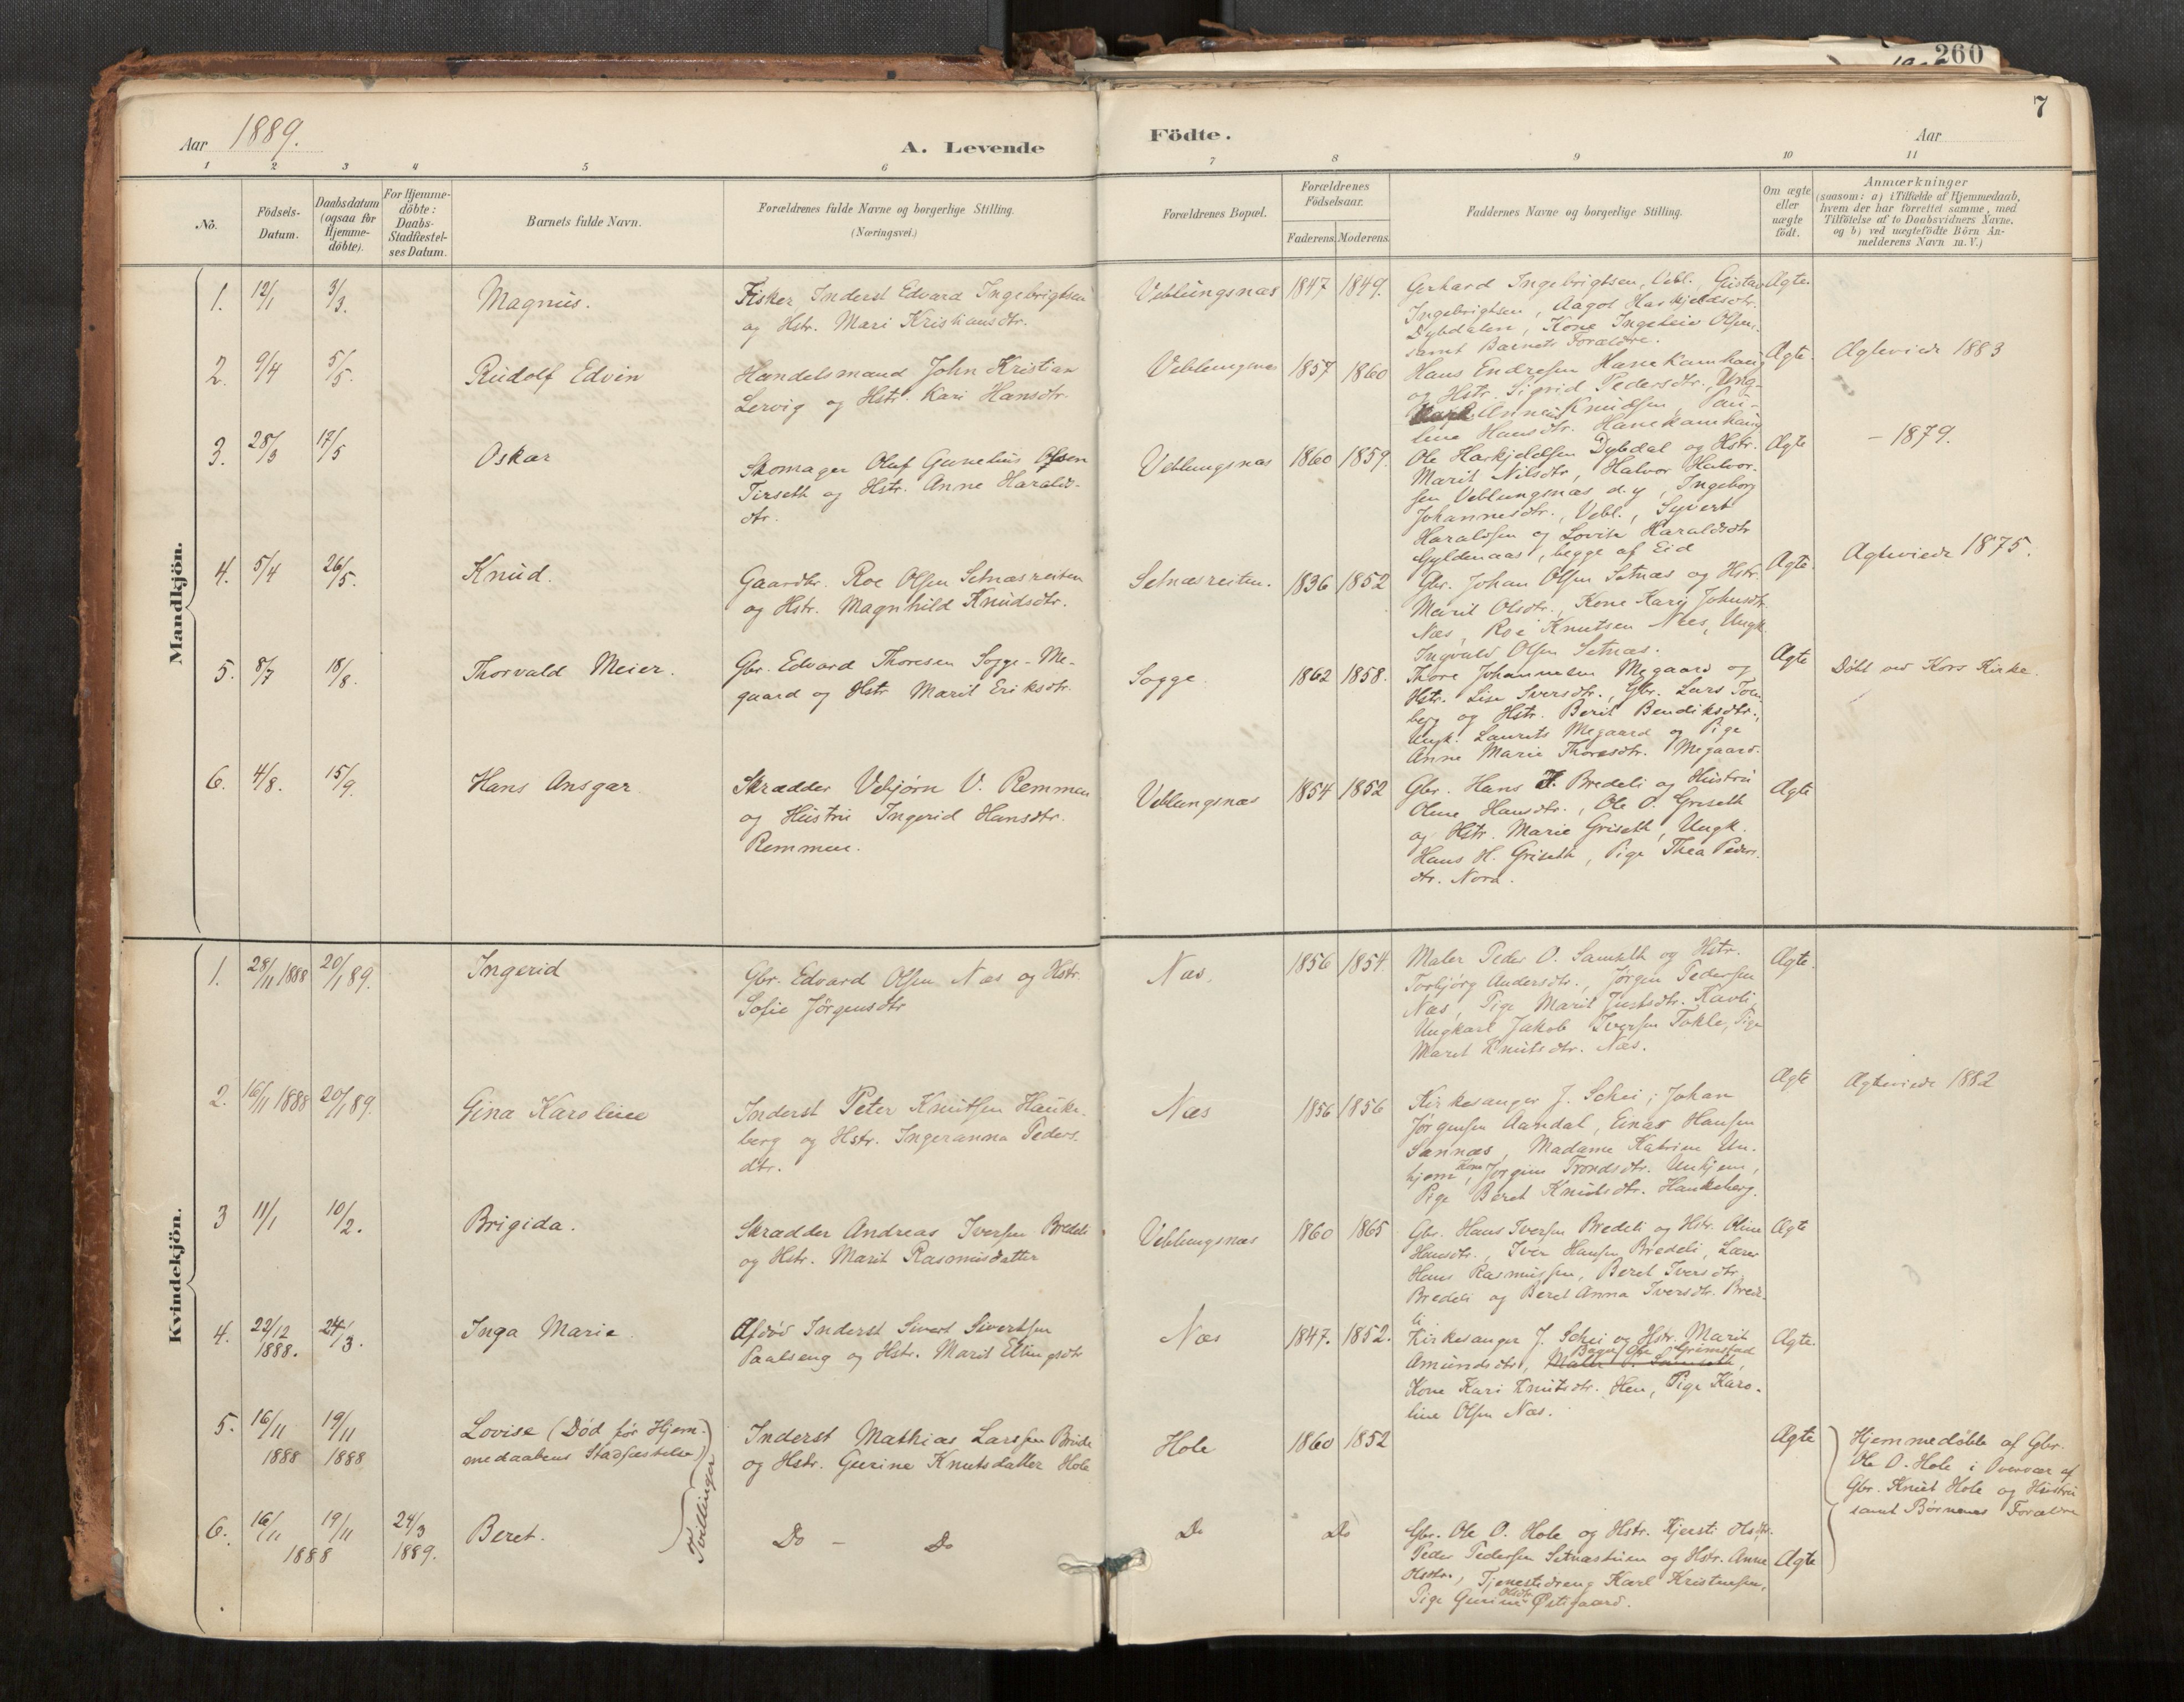 260
7
Aar 1889.
A. Levende
Födte.
Aar
1 2 3 4 5 6 7 8 9 10 11
No.
Födsels-
Datum.
Daabsdatum
(ogsaa for
Hjemme-
döbte).
For Hjemme-
döbte:
Daabs-
Stadfæstel-
ses Datum.
Barnets fulde Navn.
Forældrenes fulde Navne og borgerlige Stilling.
(Næringsvei.)
Forældrenes Bopæl.
Forældrenes
Födselsaar.
Faderens. Moderens.
Faddernes Navne og borgerlige Stilling.
Om ægte
eller
uægte
födt.
Anmærkninger
(saasom: a) i Tilfælde af Hjemmedaab,
hvem der har forrettet samme, med
Tilföielse af to Daabsvidners Navne.
og b) ved uægtefödte Börn An-
melderens Navn m. V.)
Mandkjön.
1. 12/1 3/3. Magnus.
Fisker Inderst Edvard Ingebrigtsen
og Hstr. Mari Kristiansdtr.
Veblungsnæs 1847 1849.
Gerhard Ingebrigtsen, Vebl. Gustav
Ingebrigtsen, Aagot Haskjeldsdtr.
Dybdalen, Kone Ingeleiv Olsen.
samt Barnets Forældre.
Ægte.
2. 9/4 5/5. Rudolf Edvin
Handelsmand John Kristian
Lervig og Hstr. Kari Hansdtr.
Veblungsnæs 1857 1860
Hans Endresen Hanekamhaug
og Hstr. Sigrid Pedersdtr. Ung-
Knudsen, Pau-
line Hansdtr. Hanekamhaug
Ægte. Ægteviede 1883
3. 28/3 17/5 Oskar
Skomager Oluf Gunelius Olsen
Tirseth og Hstr. Anne Haralds-
dtr.
Veblungsnæs 1860 1859.
Ole Haskjeldsen Dybdal og Hstr.
Marit Nilsdtr, Halvor Halvor-
sen Veblungsnæs d.y, Ingeborg
Johannesdtr., Vebl., Syvert
Haraldsen og Lovise Haraldsdtr
Gyldenaas, begge af Eid
Ægte - 1879.
4. 5/4 26/5. Knud.
Gaardbr. Roe Olsen Setnæsreiten
og Hstr. Magnhild Knudsdtr.
Setnæsreiten. 1836 1852
Gbr. Johan Olsen Setnæs og Hstr.
Marit Olsdtr., Kone Kary Johnsdtr.
Næs, Roe Knutsen Næs, Ungk.
Ingvald Olsen Setnæs.
Ægte. Ægteviede 1875.
5. 8/7 18/8. Thorvald Meier.
Gbr. Edvard Thoresen Sogge-Me-
gaard og Hstr Marit Eriksdtr.
Sogge. 1862 1858.
Thore Johannesen Megaard og
Hstr. Lise Iversdtr., Gbr. Lars Torn-
berg og Hstr. Berit Bendiksdtr.,
Ungk. Laurits Megaard og Pige
Anne Marie Thoresdtr. Megaard.
Ægte Døbt ved Kors Kirke.
6. 4/8. 15/9. Hans Ansgar
Skrædder Vebjørn V. Remmen
og Hustru Ingerid Hansdtr.
Remmen.
Veblungsnæs 1854 1852
Gbr. Hans I. Bredeli og Hustru
Oline Hansdtr., Ole O. Griseth
og Hstr. Marie Griseth, Ungk.
Hans H. Griseth, Pige Thea Peders-
dtr. Nora.
Ægte
Kvindekjön.
1. 28/11 1888 20/1 89. Ingerid
Gbr. Edvard Olsen Næs og Hstr.
Sofie Jørgensdtr
Næs, 1856 1854.
Maler Peder O. Samseth og Hstr.
Torbjørg Andersdtr., Jørgen Pedersen
Næs, Pige Marit Justsdtr. Kavli,
Ungkarl Jakob Iversen Tokle, Pige
Maret Knutsdtr. Næs.
Ægte.
2. 16/11 1888 20/1 89. Gina Karoline
Inderst Peter Knutsen Hauke-
berg og Hstr. Ingeranna Peders-
dtr.
Næs 1856 1856
Kirkesanger J. Schei; Johan
Jørgensen Aandal, Einar Hansen
Sannæs, Madame Katrine Un-
hjem, Kone Jørgine Trondsdtr. Unhjem,
Pige Beret Knutsdtr. Haukeberg.
Ægte Ægteviede 1882
3 11/1 10/2. Brigida.
Skrædder Andreas Iversen Bredeli
og Hstr. Marit Rasmusdatter
Veblungsnæs 1860 1865
Gbr. Hans Iversen Bredeli og Hstr. Oline
Hansdtr., Iver Hansen Bredeli, Lærer
Hans Rasmussen, Beret Iversdtr.
Bredeli og Beret Anna Iversdtr. Brede-
li
Ægte
4. 22/12 1888. 24/3. Inga Marie
Afdød Inderst Sivert Sivertsen
Paalseng og Hstr. Marit Ellingsdtr
Næs 1847. 1852.
Kirkesanger J. Schei og Hstr. Marit
Amundsdtr, Bager Ole Grimstad
Kone Kari Knutsdtr. Hen, Pige Karo-
line Olsen Næs.
Ægte.
5. 16/11 1888 19/11 1888 Lovise (Død før Hjem-
medaabens Stadfæstelse)
Tvillinger
Inderst Mathias Larssen Brude
og Hstr. Gurine Knutsdatter Hole
Hole 1860 1852
Ægte
Hjemmedøbte af Gbr.
Ole O. Hole i Overvær af
Gbr. Knut Hole og Hustru
samt Børnenes Forældre
6. 16/11 19/11 1888 24/3 1889. Beret.
Do - Do
Do Do
Gbr. Ole O. Hole og Hstr. Kjersti Olsdtr.
Peder Pedersen Setnæstuen og Hstr. Anne
Olsdtr., Tjenestedreng Karl Kristensen,
Pige Gurine Olsdtr. Østigaard.
Ægte